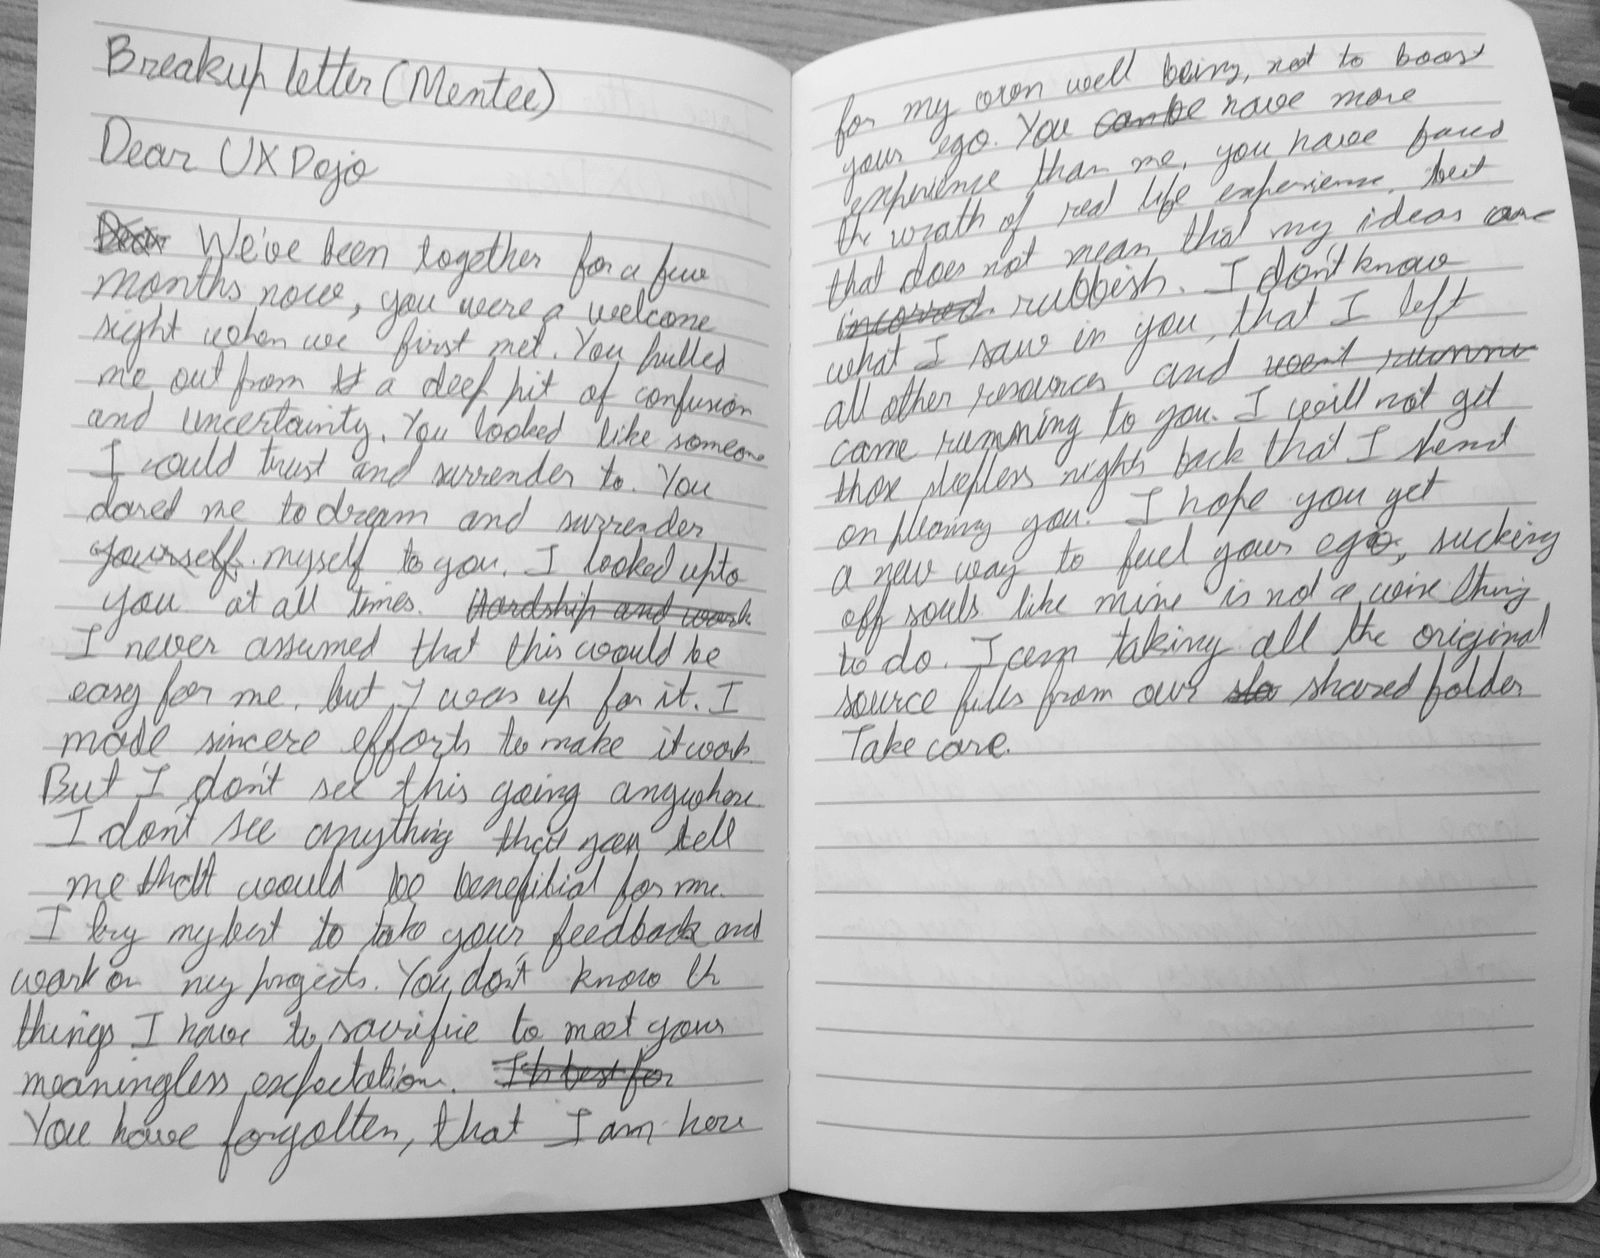 Breakup letter (Mentee)
Dear UX Dojo
Dear We've been together for a few
months now, you were a welcome
sight when we first met. You pulled
me out from a deep pit of confusion
and uncertainity. You looked like someone
I could trust and surrender to. You
dared me to dream and surrender
yourself. myself to you. I looked upto
you at all times. Hardship and work
I never assumed that this would be
easy for me, but I was up for it. I
made sincere efforts to make it work
But I don't see this going anywhere
I don't see anything that you tell
me that would be benefitial for me.
I try my best to take your feedback and
work on my projects. You don't know th
things I have to sacrifice to meet your
meaningless expectation. Its best for
You have forgotten, that I am here
for my own well being, not to boost
your ego. You can be have more
experience than me, you have faced
the wrath of real life experience, but
that does not mean that my ideas are
incorrect. rubbish. I don't know
what I saw in you, that I left
all other resources and went runnin
came running to you. I will not get
those sleepless nights back that I spend
on pleasing you. I hope you get
a new way to fuel your ego, sucking
off souls like mine is not a wise thing
to do. I am taking all the original
source files from our shared folder
Take care.